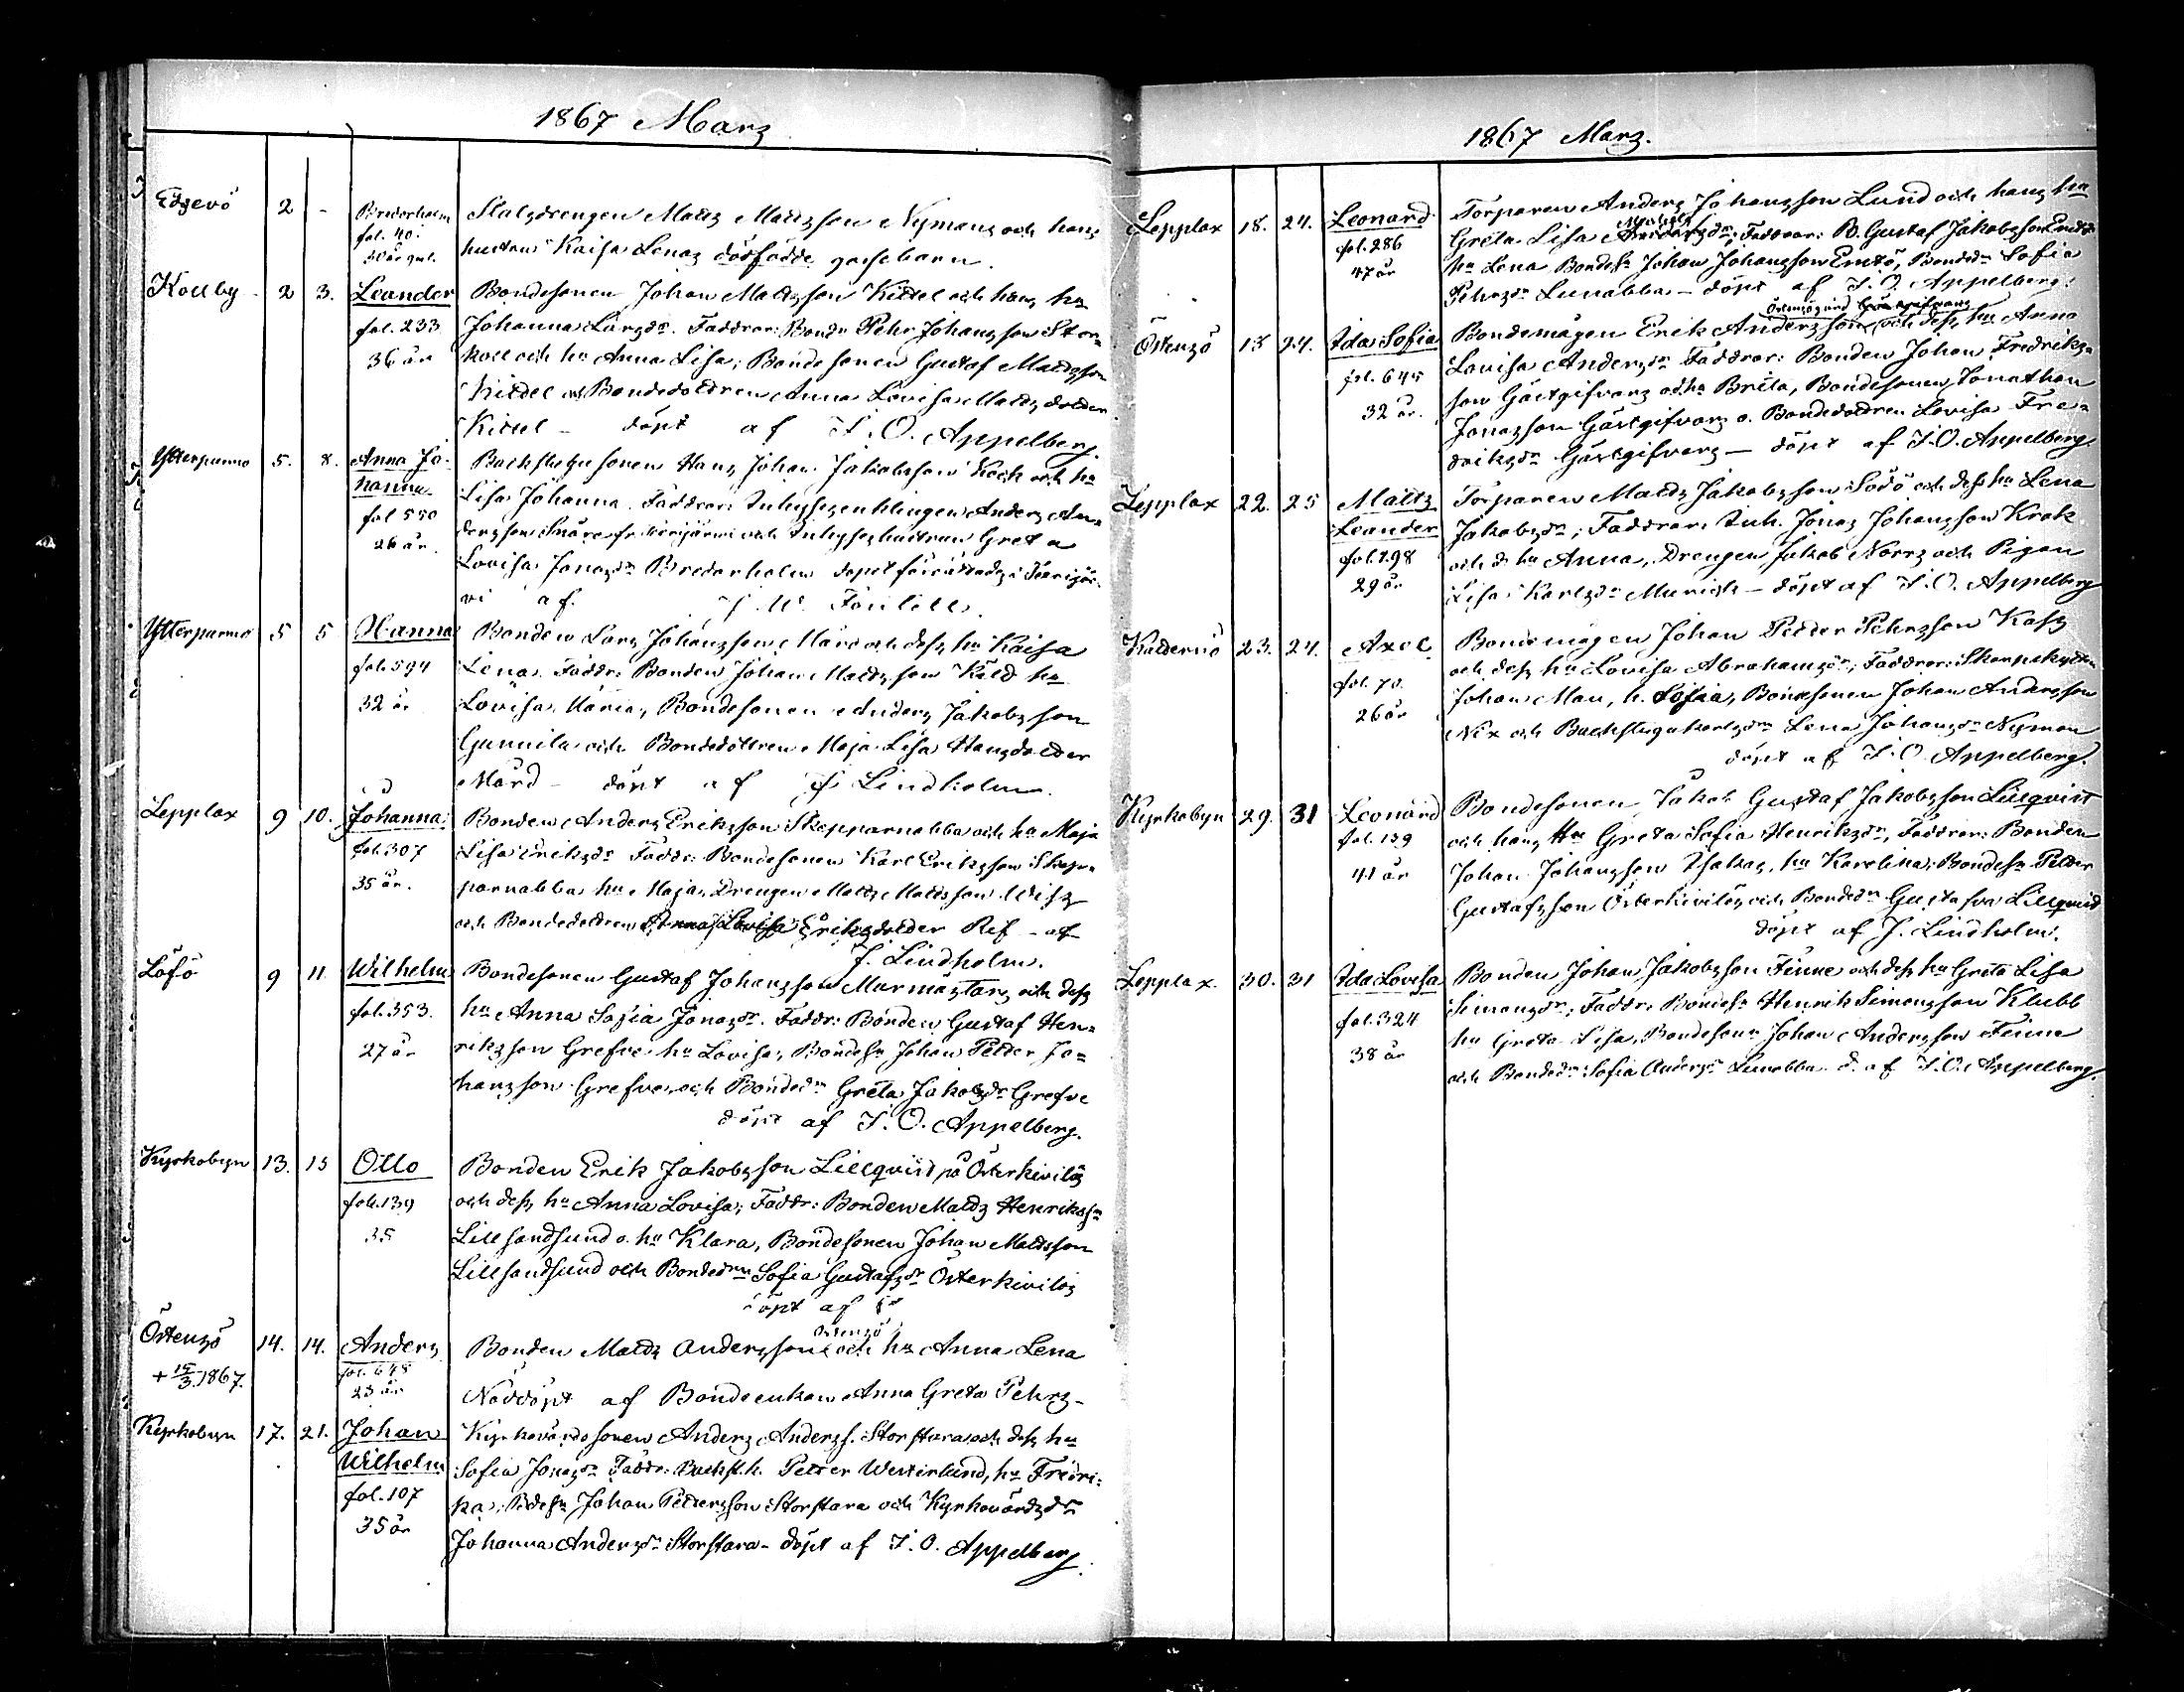 1867 Marz
Edsevö 2 - Brederholm Stalsdrengen Matts Mattsson Nymans och hans
fol. 40.
30 år gml. hustrus Kaisa Lenas dödfödde gossebarn.
Kållby 2 3. Leander Bondesonen Johan Mattsson Kittel och hans hu
fol. 233 Johanna Larsdr. Faddrar: Bondn Pehr Johansson Stor
36 år koll och hu Anna Lisa; Bondesonen Gustaf Mattsson
Kittel och Bondedottren Anna Lovisa Matts dotter
Kittel – döpt af J. O. Appelberg.
Ytterpurmo 5. 8. Anna Jo- Backstugusonen Hans Johan Jakobsson Kock och hu
hanna Lisa Johanna. Faddrar: Inhysesynklingen Anders An-
fol 550 dersson Snåre fr. Terijärvi och Inhyseshustrun Greta
26 år. Lovisa Jonasdr Brederholm dopet förrättades i Terijär-
vi af
Ytterpurmo 5 5 Hanna Bonden Lars Johansson Mård och dess hu Kaisa
fol. 594 Lena. Faddr: Bonden Johan Mattsson Käld hu
32 år Lovisa Maria, Bondesonen Anders Jakobsson
Gunnila och Bondedottren Maja Lisa Hansdotter
Mård – döpt af J. Lindholm.
Lepplax 9 10. Johanna Bonden Anders Eriksson Skepparnabba och hu Maja
fol. 307 Lisa Eriksdr Faddr: Bondesonen Karl Eriksson Skep-
35 år. parnabba hu Maja, Drengen Matts Mattsson Wisz
och Bondedottren Anna Lovisa Eriksdotter Ref – af
J. Lindholm.
Löfö 9 11 Wilhelm Bondesonen Gustaf Johansson Murmästars och dess
fol. 353. hu Anna Sofia Jonasdr. Faddr: Bonden Gustaf Hen-
27 år riksson Grefve hu Lovisa, Bondesn Johan Petter Jo=
hansson Grefve och Bondedn Greta Jakobsdr Grefve
döpt af J. O. Appelberg.
Kyrkobyn 13. 15 Otto Bonden Erik Jakobsson Lillqvist på Österkivilös
fol. 139 och dess hu Anna Lovisa; Faddr: Bonden Matts Henrikssn
35 Lillsandsund o. hu Klara, Bondesonen Johan Mattsson
Lillsandsund och Bondedrn Sofia Gustafsdr Österkivilös
döpt af
Östensö 14. 14. Anders Bonden Matts Andersson Östensö och hu Anna Lena
+ 15/3 1867. fol. 648
23 år Nöddöpt af Bondeenkan Anna Greta Pehrs-
Kyrkobyn 17. 21. Johan Kyrkovärdssonen Anders Anderss. Storstara och dess hu
Wilhelm Sofia Jonasdr Faddr: Backst.k. Petter Westerlund, hu Fredri-
fol. 107 ka; Bdesn Johan Pettersson Storstara och Kyrkovärdsdr
35 år Johanna Andersdr Storstara – döpt af J. O. Appelberg.
1867 Marz.
Lepplax 18. 24. Leonard Torparen Anders Johansson Lund och hans hu
fol. 286 Greta Lisa Andersdr; Faddrar: B. Gustaf Jakobsson
47 år hu Lena Bondesn Johan Johansson Emtö, Bondedr Sofia
Pehrsdr Lunabba – döpt af J. O. Appelberg.
Östensö 18 24. Ida Sofia Bondemågen Erik Andersson och dess hu Anna
fol. 645 Lovisa Andersdr Faddrar: Bonden Johan Fredriks-
32 år. son Gästgifvars och hu Brita, Bondesonen Jonathan
Jonasson Gästgifvars o. Bondedottren Lovisa Fre-
driksdr Gästgifvars – döpt af J. O. Appelberg
Lepplax 22. 25 Matts Torparen Matts Jakobsson Södö och dess hu Lena
Leander Jakobsdr; Faddrar: Inh. Jonas Johansson Krok
fol. 298 och d. hu Anna, Drengen Jakob Norrs och Pigan
29 år Lisa Karlsdr Murick – döpt af J. O. Appelberg
Katternö 23. 24. Axel Bondemågen Johan Petter Pehrsson Kass
fol. 70. och dess hu Lovisa Abrahamsdr; Faddrar: Skarpskytten
26 år Johan Man, h. Sofia, Bondesonen Johan Andersson
Nix och Backstugukarlsdrn Lena Johansdr Nyman
döpt af J. O. Appelberg.
Kyrkobyn 29. 31 Leonard Bondesonen Jakob Gustaf Jakobsson Lillqvist
fol. 139 och hans Hu Greta Sofia Henriksdr, Faddrar: Bonden
41 år Johan Johansson hu Karolina; Bondesn Petter
Gustafsson Österkivilös och Bondedn Gustafva Lillqvist
döpt af J. Lindholm.
Lepplax. 30. 31 Ida Lovisa Bonden Johan Jakobsson Finne och dess hu Greta Lisa
fol. 324 Simonsdr; Faddr: Bondesn Henrik Simonsson Klubb
38 år hu Greta Lisa, Bondesonn Johan Andersson Finne
och Bondedn Sofia Andersdr Lunabba d. af J. O. Appelberg.